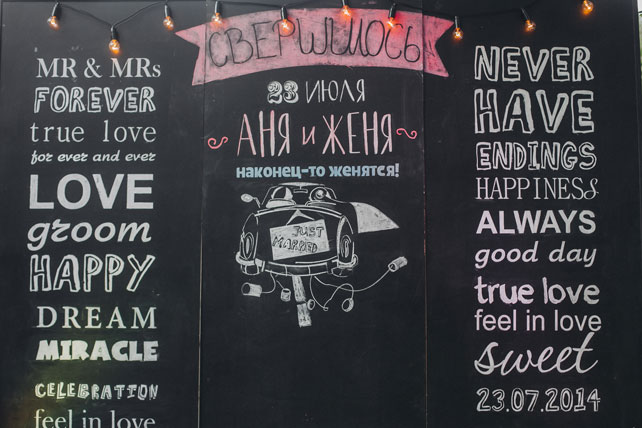 MR & MRs
FOREVER
true love
for ever and ever
LOVE
groom
HAPPY
DREAM
MIRACLE
CELEBRATION
feel in love
СВЕРШИЛОСЬ
23 ИЮЛЯ
~ АНЯ и ЖЕНЯ ~
наконец-то женятся!
JUST
MARRIED
NEVER
HAVE
ENDINGS
HAPPINESS
ALWAYS
good day
true love
feel in love
sweet
23.07.2014